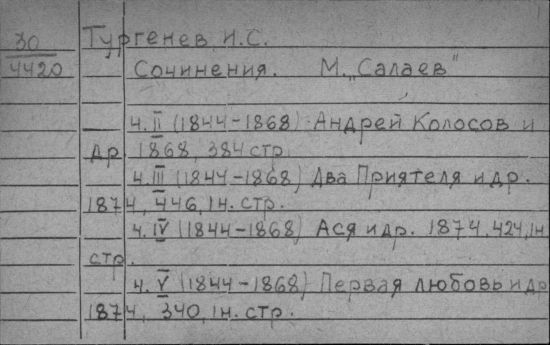 30 Тургенев, И.С.
4420 Сочинения. М. „Салаев"
Ч. II (1844-1868) Андрей Колосов и
др 1868, 384 стр.
Ч. III (1844-1868) Два Приятеля и др.
1874, 446, 1н. стр.
Ч. IV (1844-1868) Ася и др. 1874, 424, 1н
стр.
Ч. V (1844-1868) Первая любовь и др
1874, 340, 1н. стр.